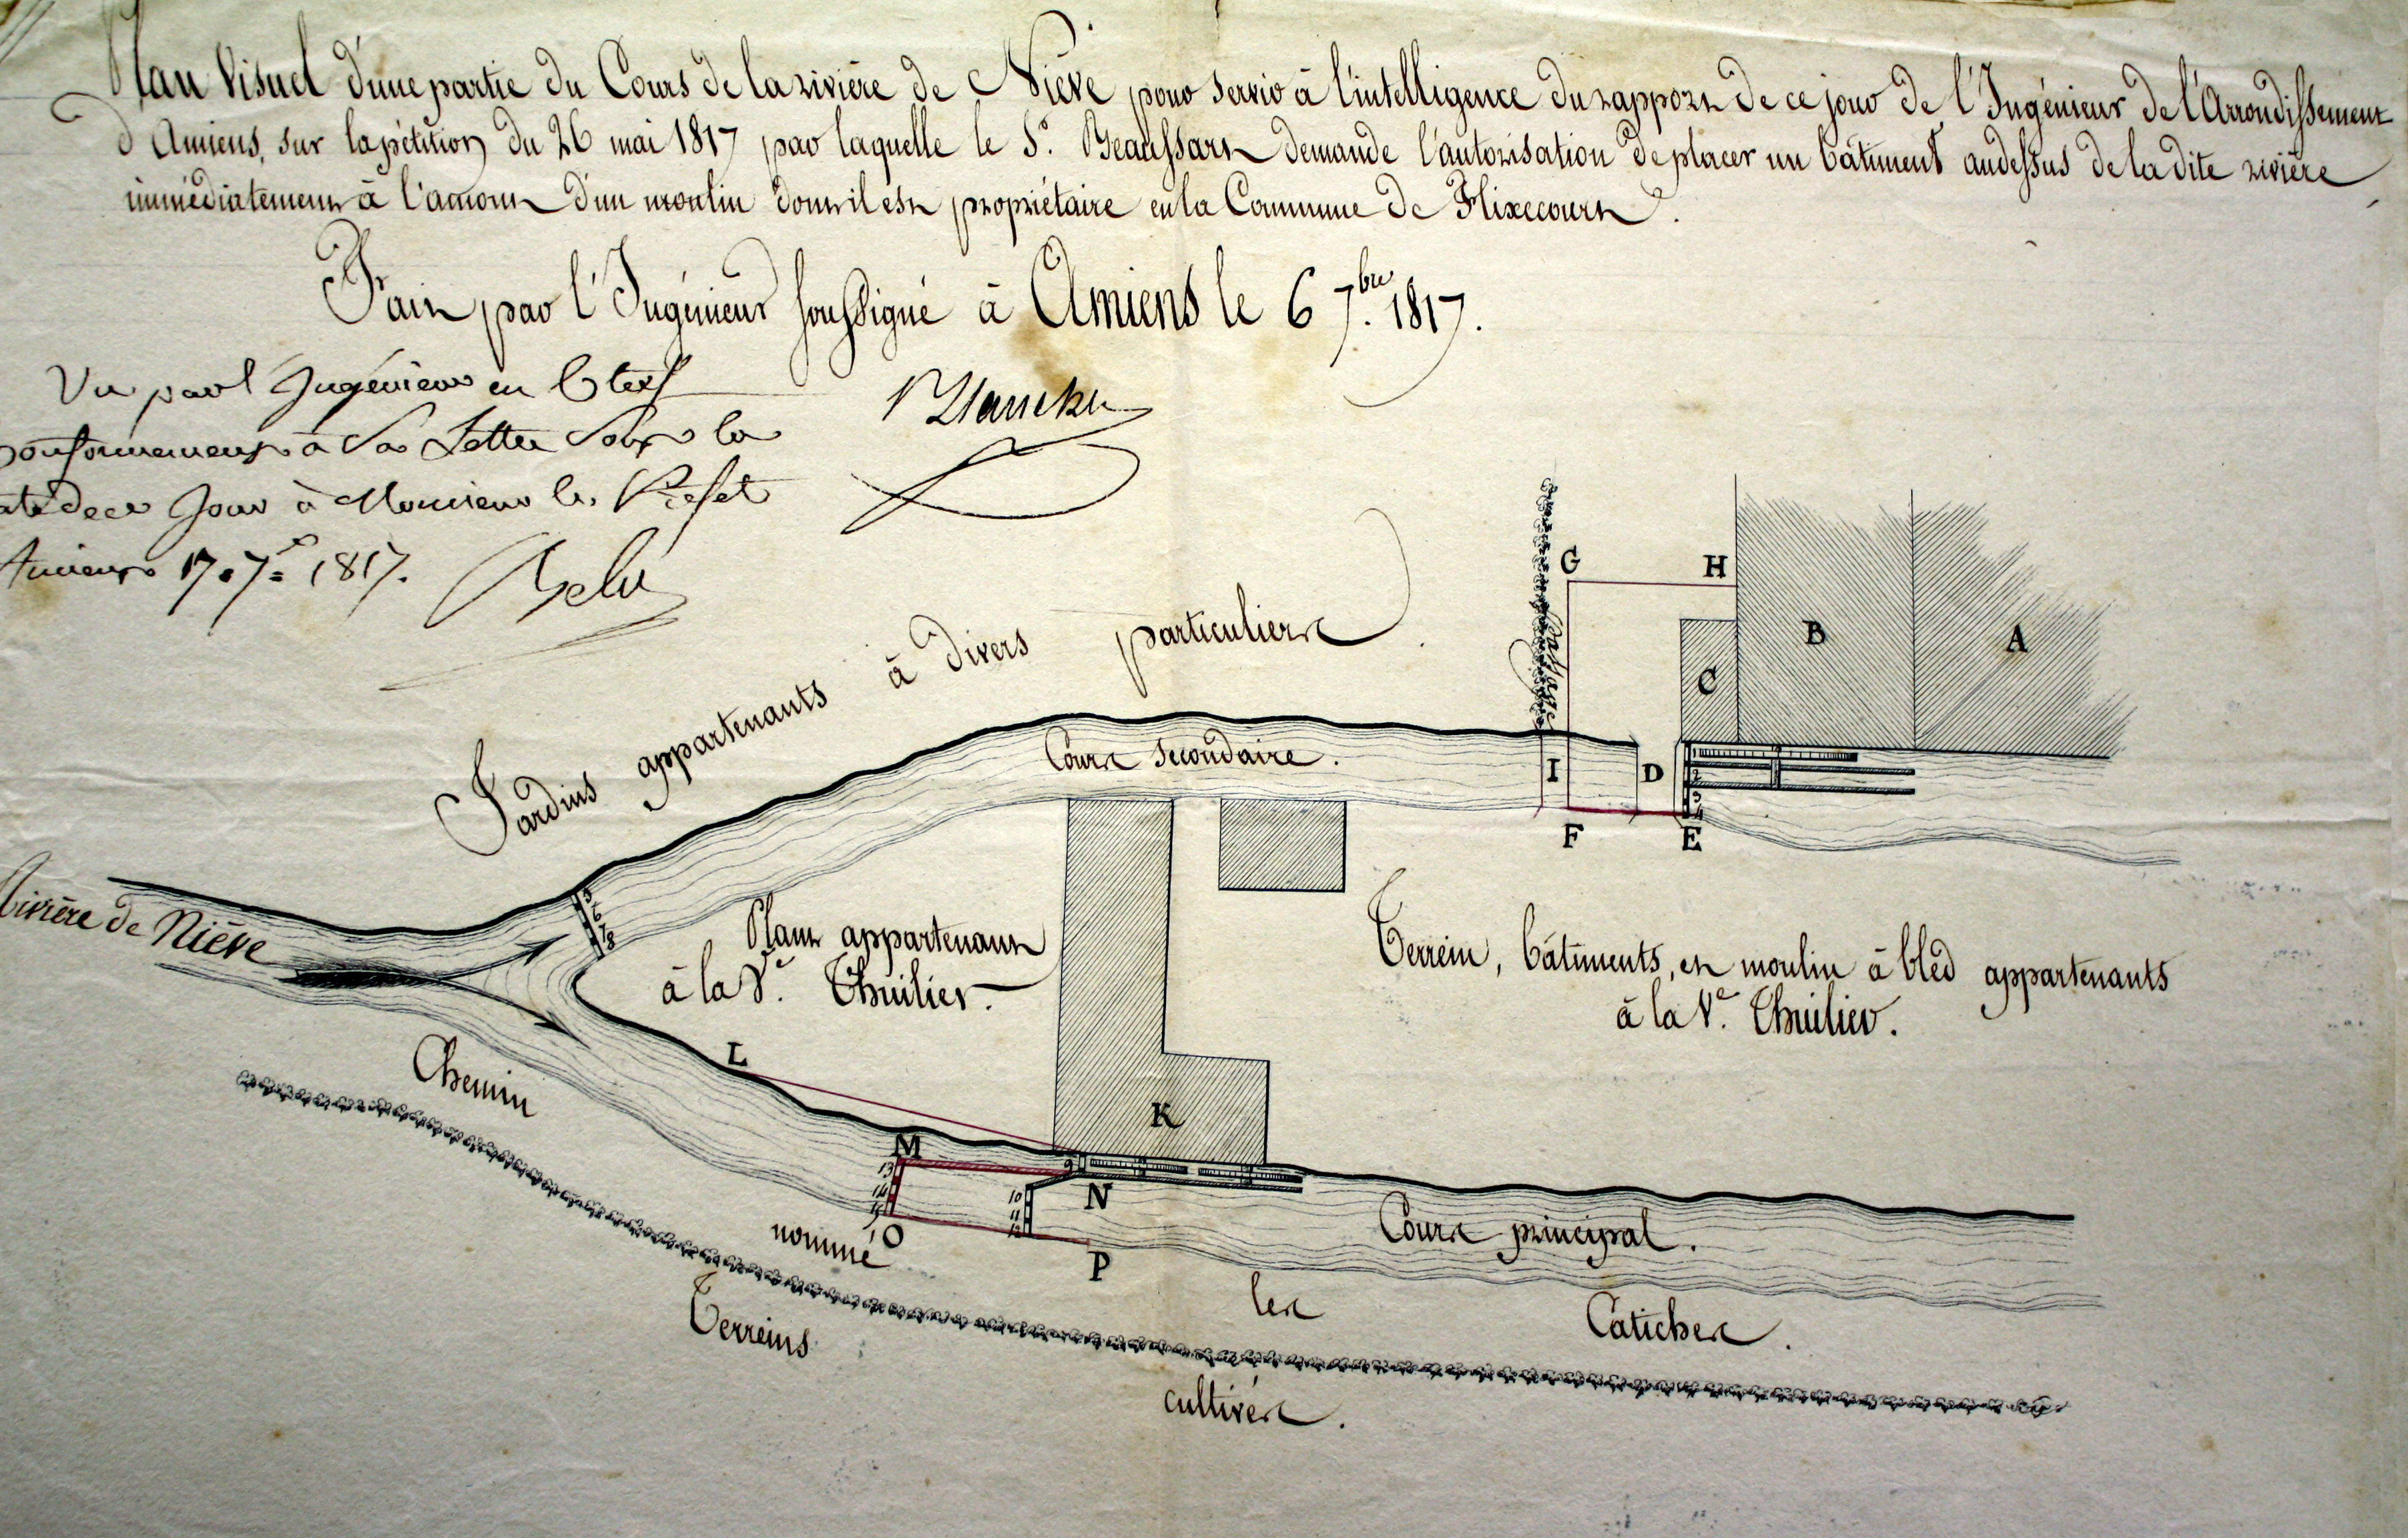 Plan Visuel d'une partie du Cours de la rivière de Niève pour servir à l'intelligence du rapport de ce jour de l'Ingénieur de l'Arrondissement
d'Amiens, sur la pétition du 26 mai 1817 par laquelle le Sr. Beaussart demande l'autorisation de placer un bâtiment au dessus de la dite rivière
immédiatement à l'amont d'un moulin dont il est propriétaire en la Commune de Flixecourt.
Fait par l'Ingénieur soussigné à Amiens le 6 7.bre 1817.
Vu par l'Ingénieur en Chef
conformément à Sa Lettre Sous la
date de ce Jour à Monsieur le Préfet
Amiens 17. 7e 1817.
Jardins appartenants à divers particuliers.
G
H
Passage
B
A
C
Cours Secondaire.
I
D
1
2
3
4
F
E
Rivière de Niève
5
6
7
8
Plant appartenant
à la Ve. Thuilier.
Terrein, bâtiments, et moulin à bled appartenants
à la Ve. Thuilier.
L
K
M
13
14
15
9
10
11
12
N
O
P
Cours principal.
Chemin nommé les Catiches.
Terreins cultivés.